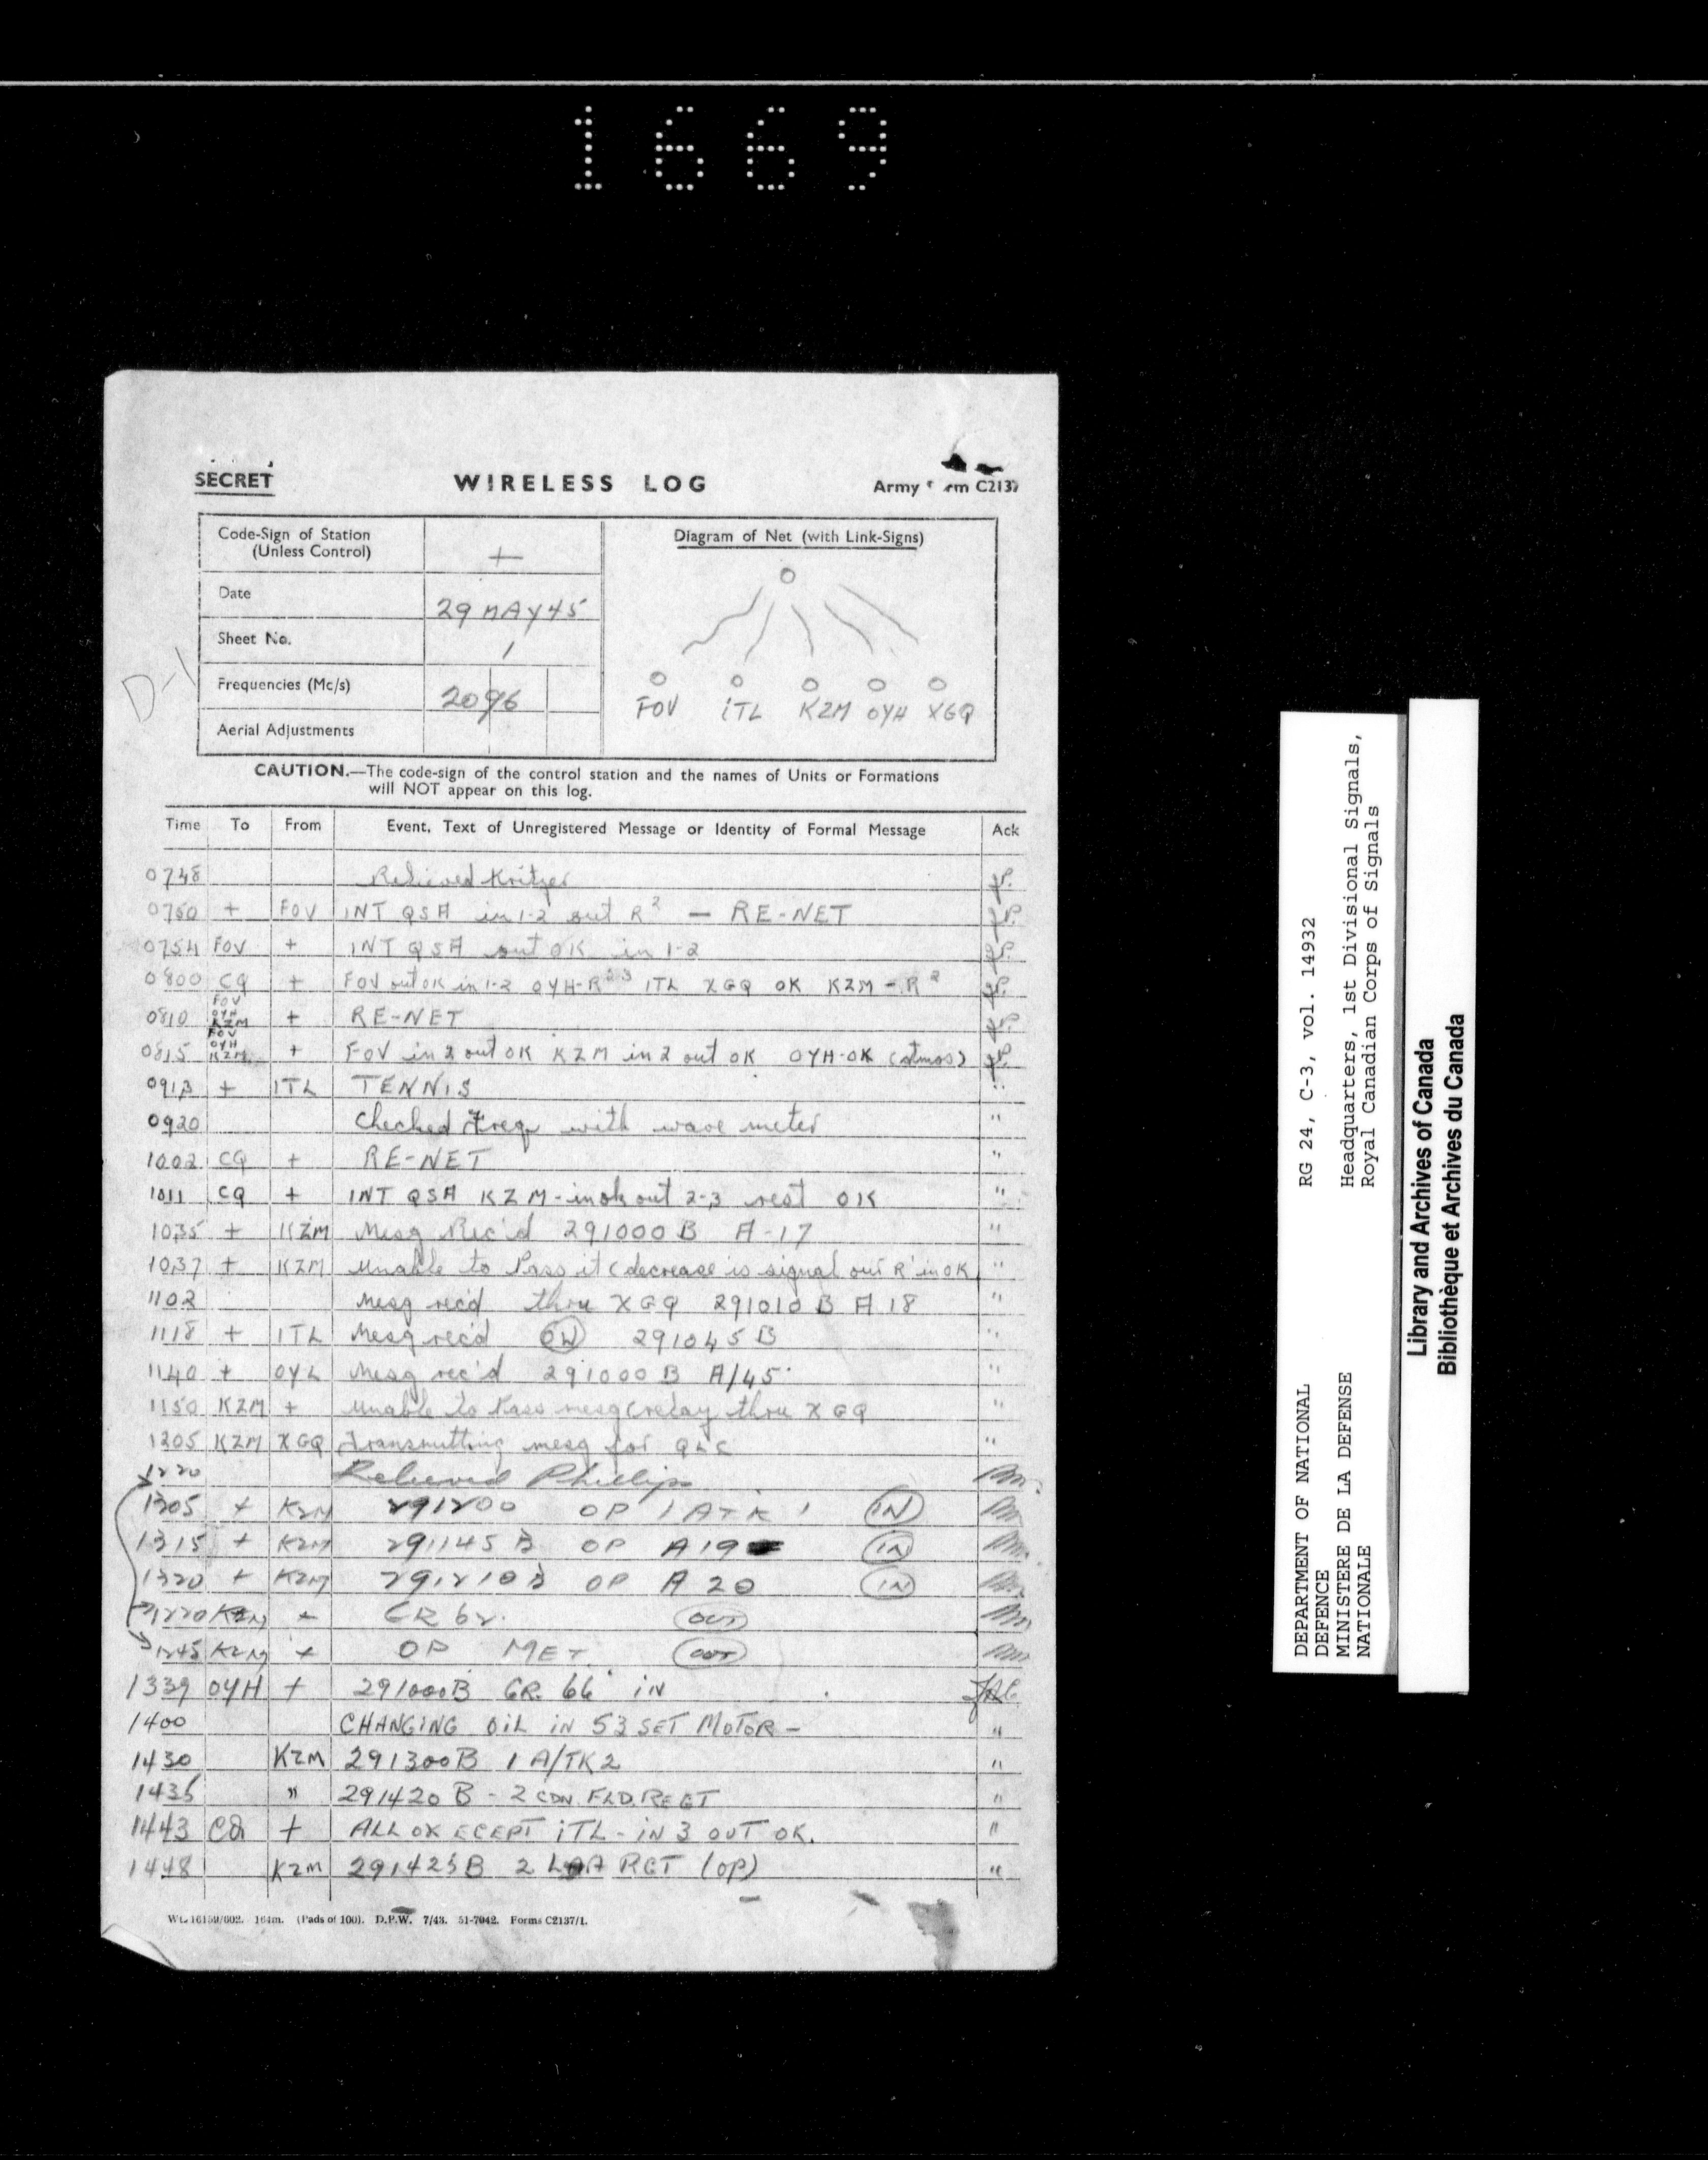 1669
SECRET
WIRELESS LOG
Army Form C2137
Code-Sign of Station
(Unless Control)
+
Date
29 MAY 45
Sheet No.
1
Frequencies (Mc/s)
2096
Aerial Adjustments
Diagram of Net (with Link-Signs)
FOV ITL KZM OYH XGQ
D-1
CAUTION.—The code-sign of the control station and the names of Units or Formations
will NOT appear on this log.
Time To From Event, Text of Unregistered Message or Identity of Formal Message Ack
0748 Relieved Kritzer JP.
0750 + FOV INT QSA in 1-2 out R2 — RE-NET JP.
0754 FOV + INT QSA out OK in 1-2 JP.
0800 CQ + FOV out OK in 1-2 OYH-R2-3 ITL XGQ OK KZM - R2 JP.
FOV
OYH
0810 KZM + RE-NET JP.
FOV
OYH
0815 KZM + FOV in 2 out OK KZM in 2 out OK OYH-OK (atmos) JP.
0913 + ITL TENNIS "
0920 Checked Freq with wave meter "
1002 CQ + RE-NET "
1011 CQ + INT QSA KZM - in ok out 2-3 rest OK "
1035 + KZM Mesg Rec'd 291000 B A-17 "
1037 + KZM Unable to Pass it (decrease is signal out R' in OK "
1102 Mesg rec'd thru XGQ 291010 B A 18 "
1118 + ITL Mesg rec'd 291045 B "
1140 + OYL Mesg rec'd 291000 B A/45 "
1150 KZM + Unable to Pass mesg (relay thru XGQ "
1205 KZM XGQ Transmitting mesg for "
1220 Relieved Phillips
1305 + KZM 291200 OP 1 ATK 1 IN
1315 + KZM 291145 B OP A19 IN
1320 + KZM 291210 B OP A 20 IN
1220 KZM + GR 62. OUT
1245 KZM + OP MET. OUT
1339 OYH + 291000B GR. 66 IN
1400 CHANGING OIL IN 53 SET MOTOR - "
1430 KZM 291300B 1 A/TK 2 "
1435 " 291420 B - 2 CDN. FLD. REGT "
1443 CQ + ALL OK ECEPT ITL - IN 3 OUT OK. "
1448 KZM 291425B 2 LAA RGT (OP) "
Wt. 16159/602. 164m. (Pads of 100). D.P.W. 7/43. 51-7042. Forms C2137/1.
DEPARTMENT OF NATIONAL
DEFENCE
MINISTERE DE LA DEFENSE
NATIONALE
RG 24, C-3, vol. 14932
Headquarters, 1st Divisional Signals,
Royal Canadian Corps of Signals
Library and Archives of Canada
Bibliothèque et Archives du Canada